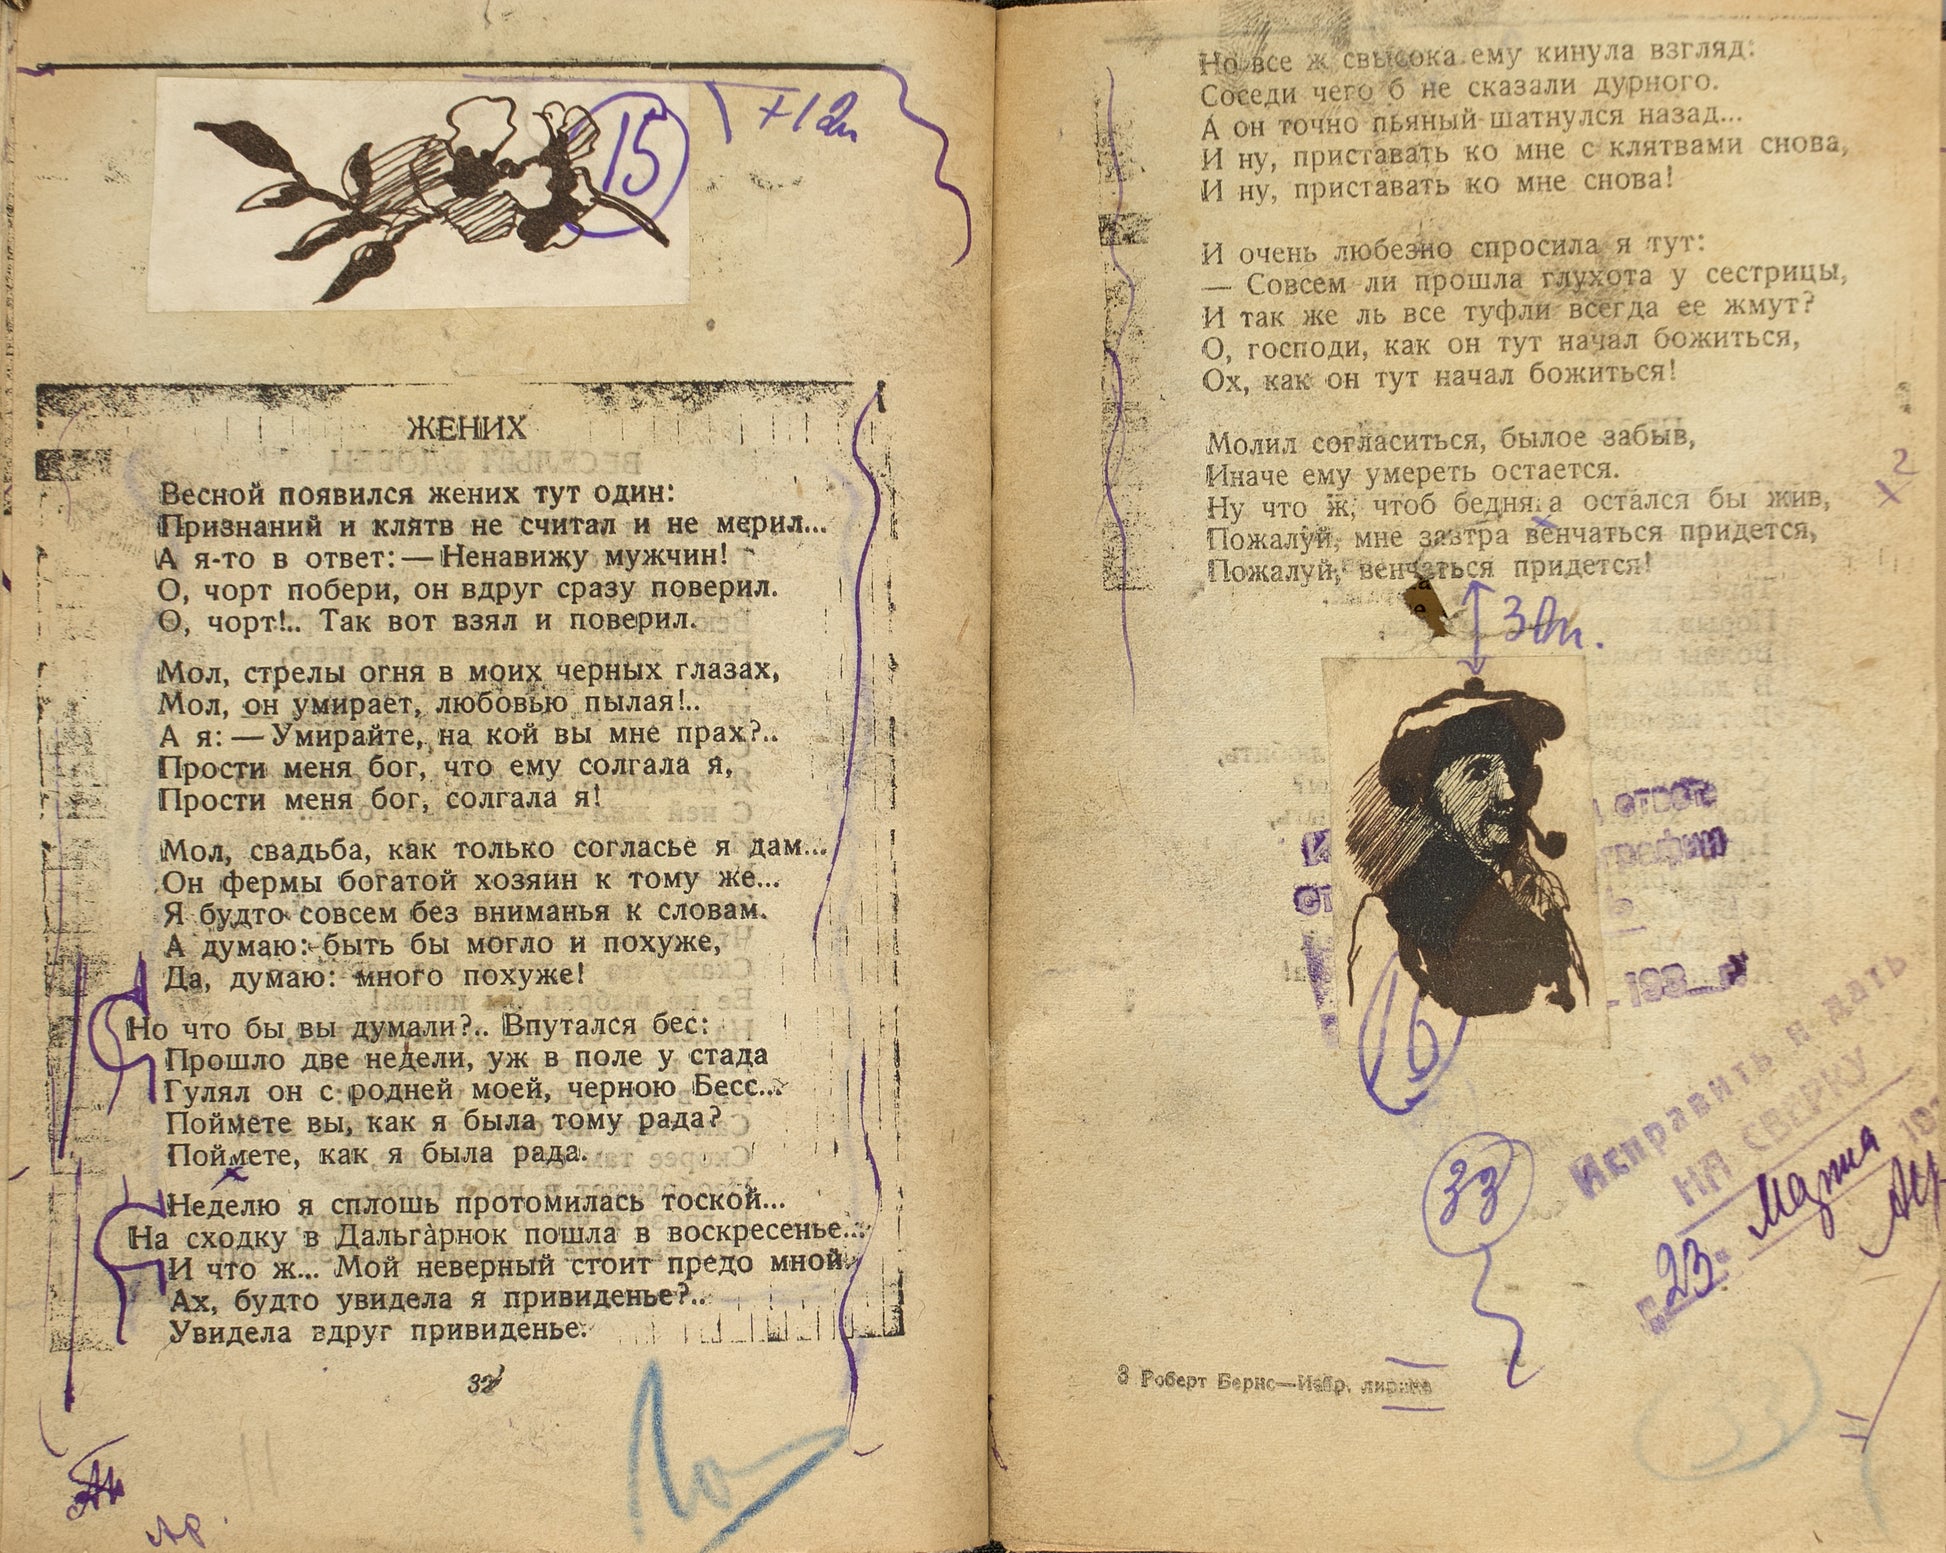 15
+12п
ЖЕНИХ
Весной появился жених тут один:
Признаний и клятв не считал и не мерил...
А я-то в ответ: — Ненавижу мужчин!
О, чорт побери, он вдруг сразу поверил.
О, чорт!.. Так вот взял и поверил.
Мол, стрелы огня в моих черных глазах,
Мол, он умирает, любовью пылая!..
А я: — Умирайте, на кой вы мне прах?..
Прости меня бог, что ему солгала я,
Прости меня бог, солгала я!
Мол, свадьба, как только согласье я дам...
Он фермы богатой хозяин к тому же...
Я будто совсем без вниманья к словам.
А думаю: быть бы могло и похуже,
Да, думаю: много похуже!
Но что бы вы думали?.. Впутался бес:
Прошло две недели, уж в поле у стада
Гулял он с родней моей, черною Бесс...
Поймете вы, как я была тому рада?
Поймете, как я была рада.
Неделю я сплошь протомилась тоской...
На сходку в Дальгарнок пошла в воскресенье...
И что ж... Мой неверный стоит предо мной.
Ах, будто увидела я привиденье?..
Увидела вдруг привиденье.
32
Но все ж свысока ему кинула взгляд:
Соседи чего б не сказали дурного.
А он точно пьяный шатнулся назад...
И ну, приставать ко мне с клятвами снова,
И ну, приставать ко мне снова!
И очень любезно спросила я тут:
— Совсем ли прошла глухота у сестрицы,
И так же ль все туфли всегда ее жмут?
О, господи, как он тут начал божиться,
Ох, как он тут начал божиться!
Молил согласиться, былое забыв,
Иначе ему умереть остается.
Ну что ж, чтоб бедня а остался бы жив,
Пожалуй, мне завтра венчаться придется,
Пожалуй, венчаться придется!
30п.
16
193 г.
33
Исправить и дать
НА СВЕРКУ
23 Марта 193
3 Роберт Бернс—Избр. лирика